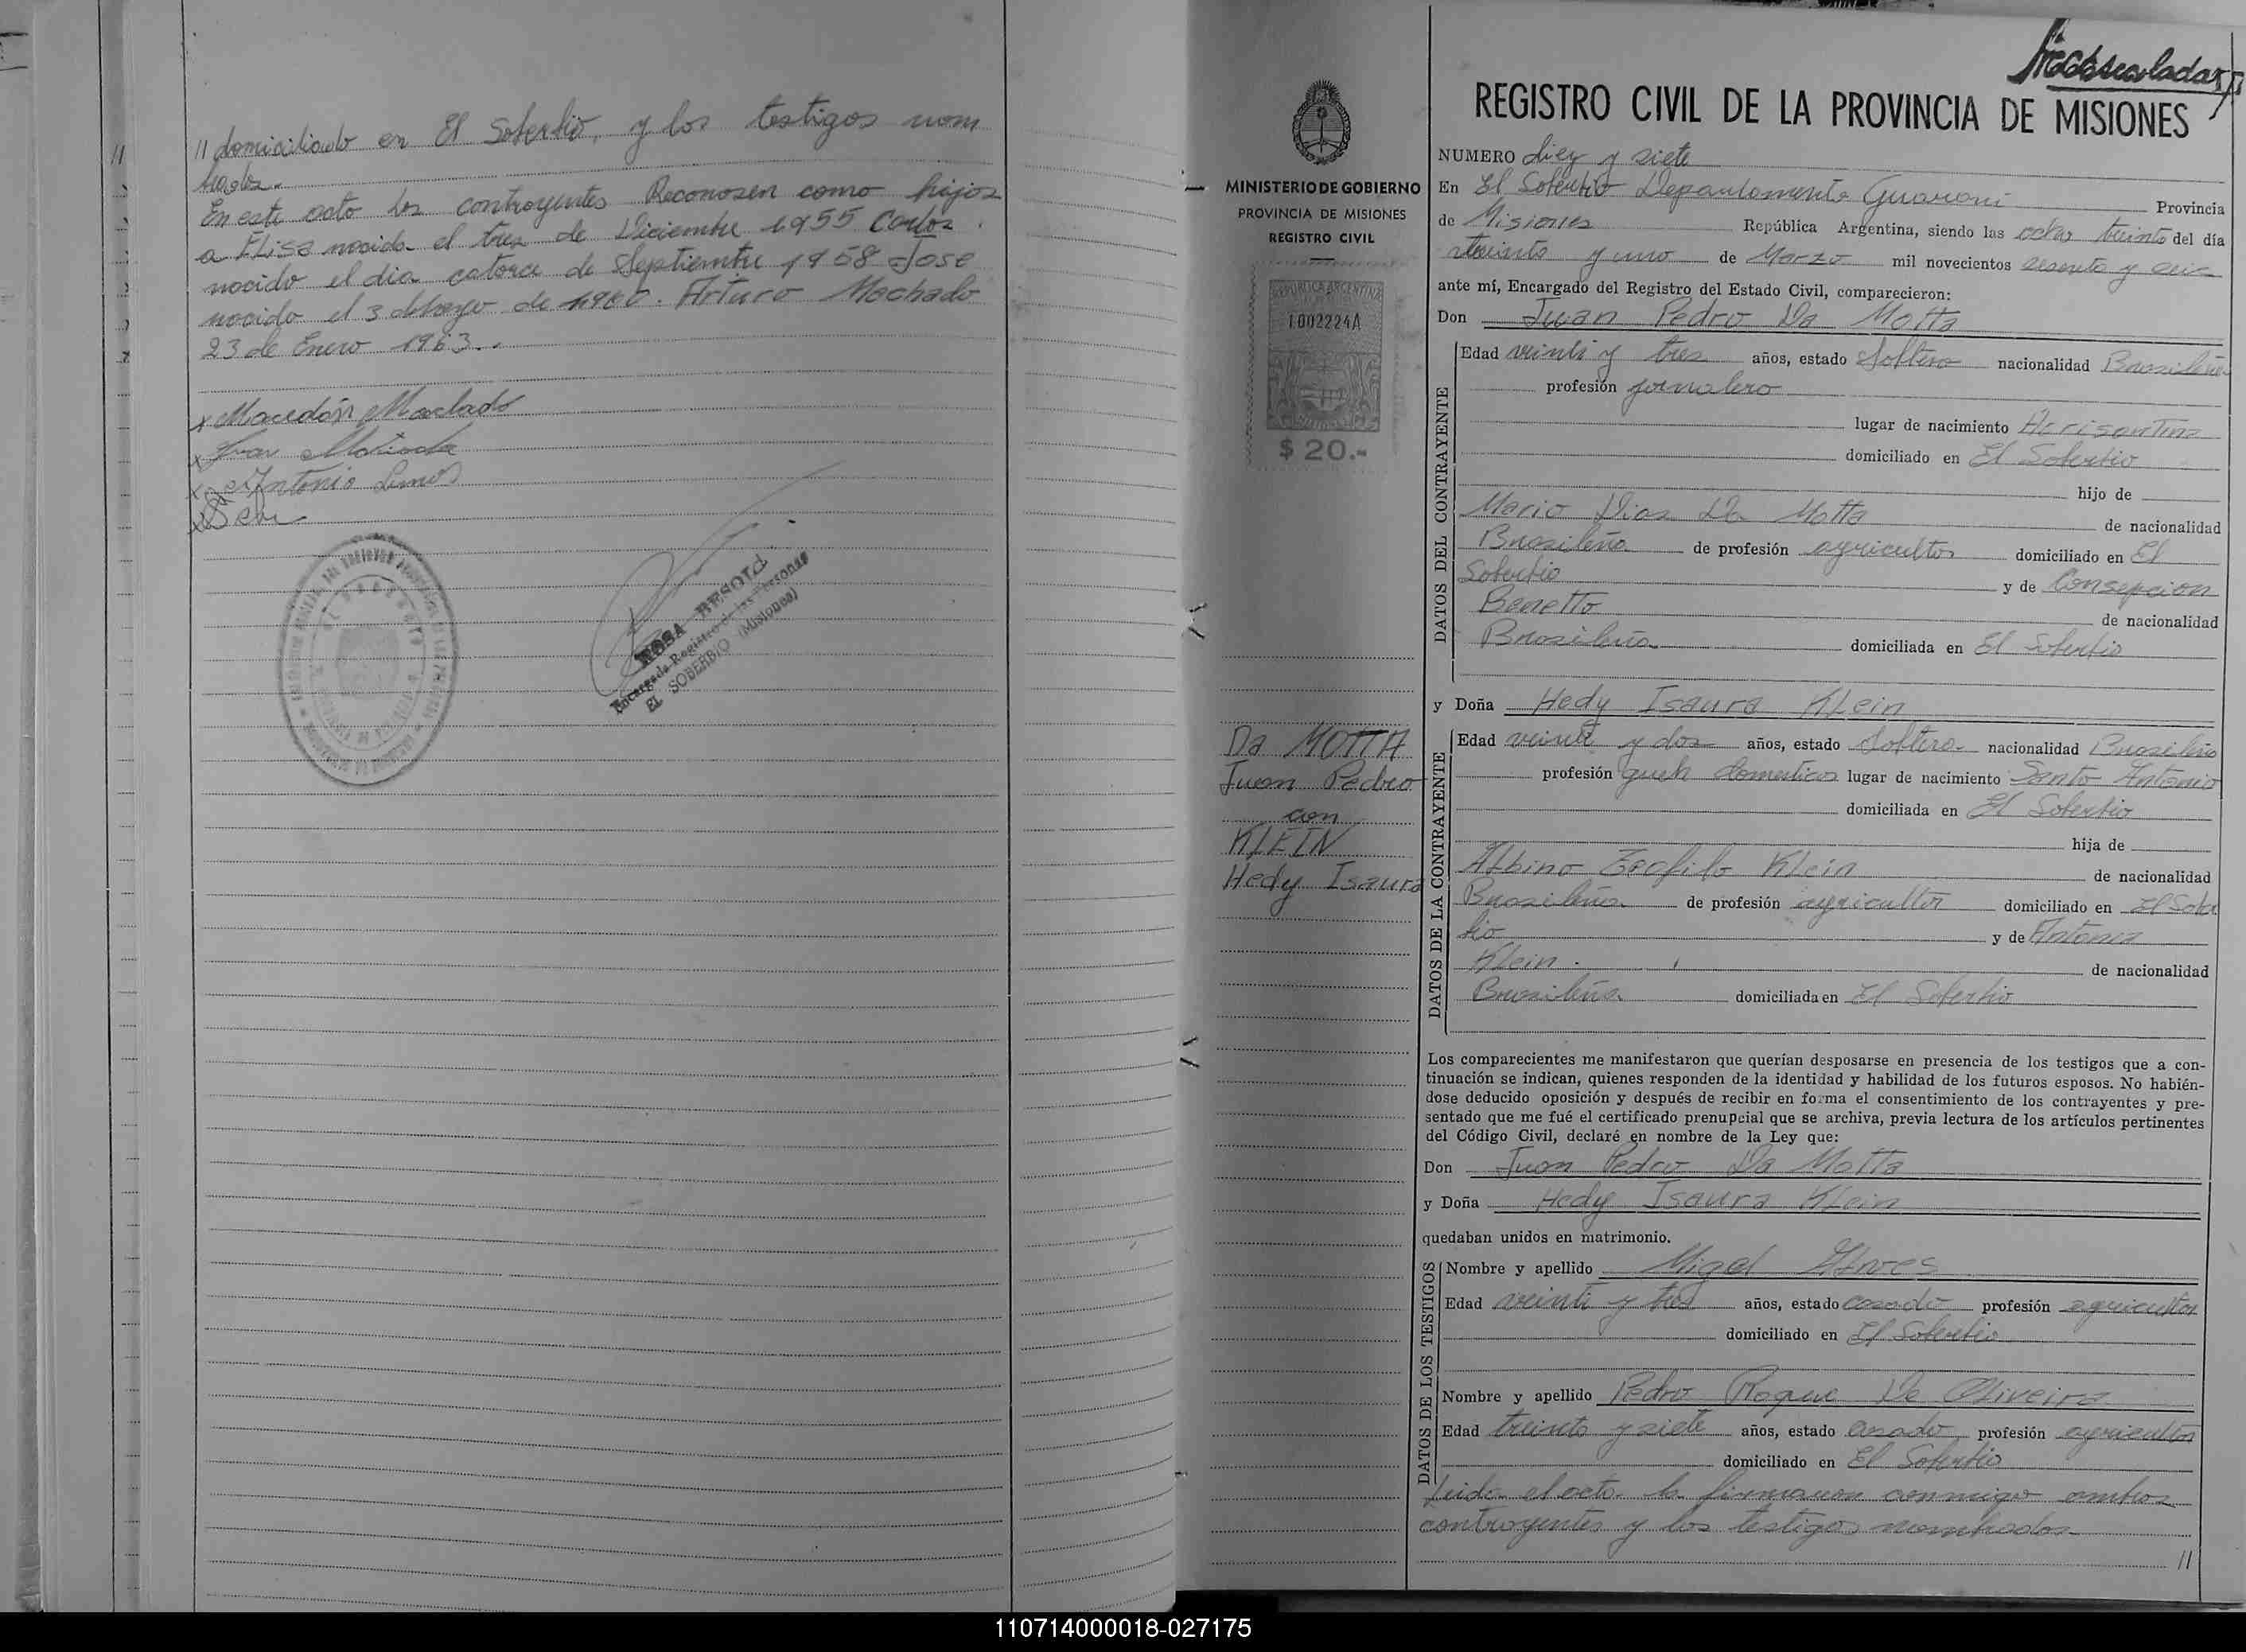 // domiciliado en El Soberbio, y los testigos nom
brados.
En este acto los contrayentes Reconosen como hijos
a Elisa nacida el tres de Diciembre 1955 Carlos
nacido el dia catorce de Septiembre 1958 Jose
nacido el 3 de Mayo de 1960. Arturo Machado
23 de Enero 1963.
Machado
Antonio
ROSA BESOLD
Encargada Registro de las Personas
EL SOBERBIO (Misiones)
MINISTERIO DE GOBIERNO
PROVINCIA DE MISIONES
REGISTRO CIVIL
REPUBLICA ARGENTINA
1002224A
$ 20.-
Da MOTTA
Juan Pedro
con
KLEIN
Hedy Isaura
REGISTRO CIVIL DE LA PROVINCIA DE MISIONES
NUMERO diez y siete
En El Soberbio Departamento Guarani Provincia
de Misiones República Argentina, siendo las ocho treinta del día
treinta y uno de Marzo mil novecientos sesenta y seis
ante mí, Encargado del Registro del Estado Civil, comparecieron:
Don Juan Pedro Da Motta
DATOS DEL CONTRAYENTE
Edad veinti y tres años, estado Soltero nacionalidad Brasileña
profesión jornalero
lugar de nacimiento
domiciliado en El Soberbio
hijo de
Mario Dias Da Motta de nacionalidad
Brasileña de profesión agricultor domiciliado en El
Soberbio y de Consepcion
Benetto de nacionalidad
Brasileña domiciliada en El Soberbio
y Doña Hedy Isaura Klein
DATOS DE LA CONTRAYENTE
Edad veinti y dos años, estado Soltera nacionalidad Brasileña
profesión domesticos lugar de nacimiento Santo Antonio
domiciliada en El Soberbio
hija de
Albino Teofilo Klein de nacionalidad
Brasileña de profesión agricultor domiciliado en El Sober
bio y de Antonia
Klein de nacionalidad
Brasileña domiciliada en El Soberbio
Los comparecientes me manifestaron que querían desposarse en presencia de los testigos que a con-
tinuación se indican, quienes responden de la identidad y habilidad de los futuros esposos. No habién-
dose deducido oposición y después de recibir en forma el consentimiento de los contrayentes y pre-
sentado que me fué el certificado prenupcial que se archiva, previa lectura de los artículos pertinentes
del Código Civil, declaré en nombre de la Ley que:
Don Juan Pedro Da Motta
y Doña Hedy Isaura Klein
quedaban unidos en matrimonio.
DATOS DE LOS TESTIGOS
Nombre y apellido Migel Alves
Edad veinti y tres años, estado casado profesión agricultor
domiciliado en El Soberbio
Nombre y apellido Pedro Roque De Oliveira
Edad treinta y siete años, estado casado profesión agricultor
domiciliado en El Soberbio
Leida el acta la firmaron conmigo ambos
contrayentes y los testigos nombrados
//
110714000018-027175